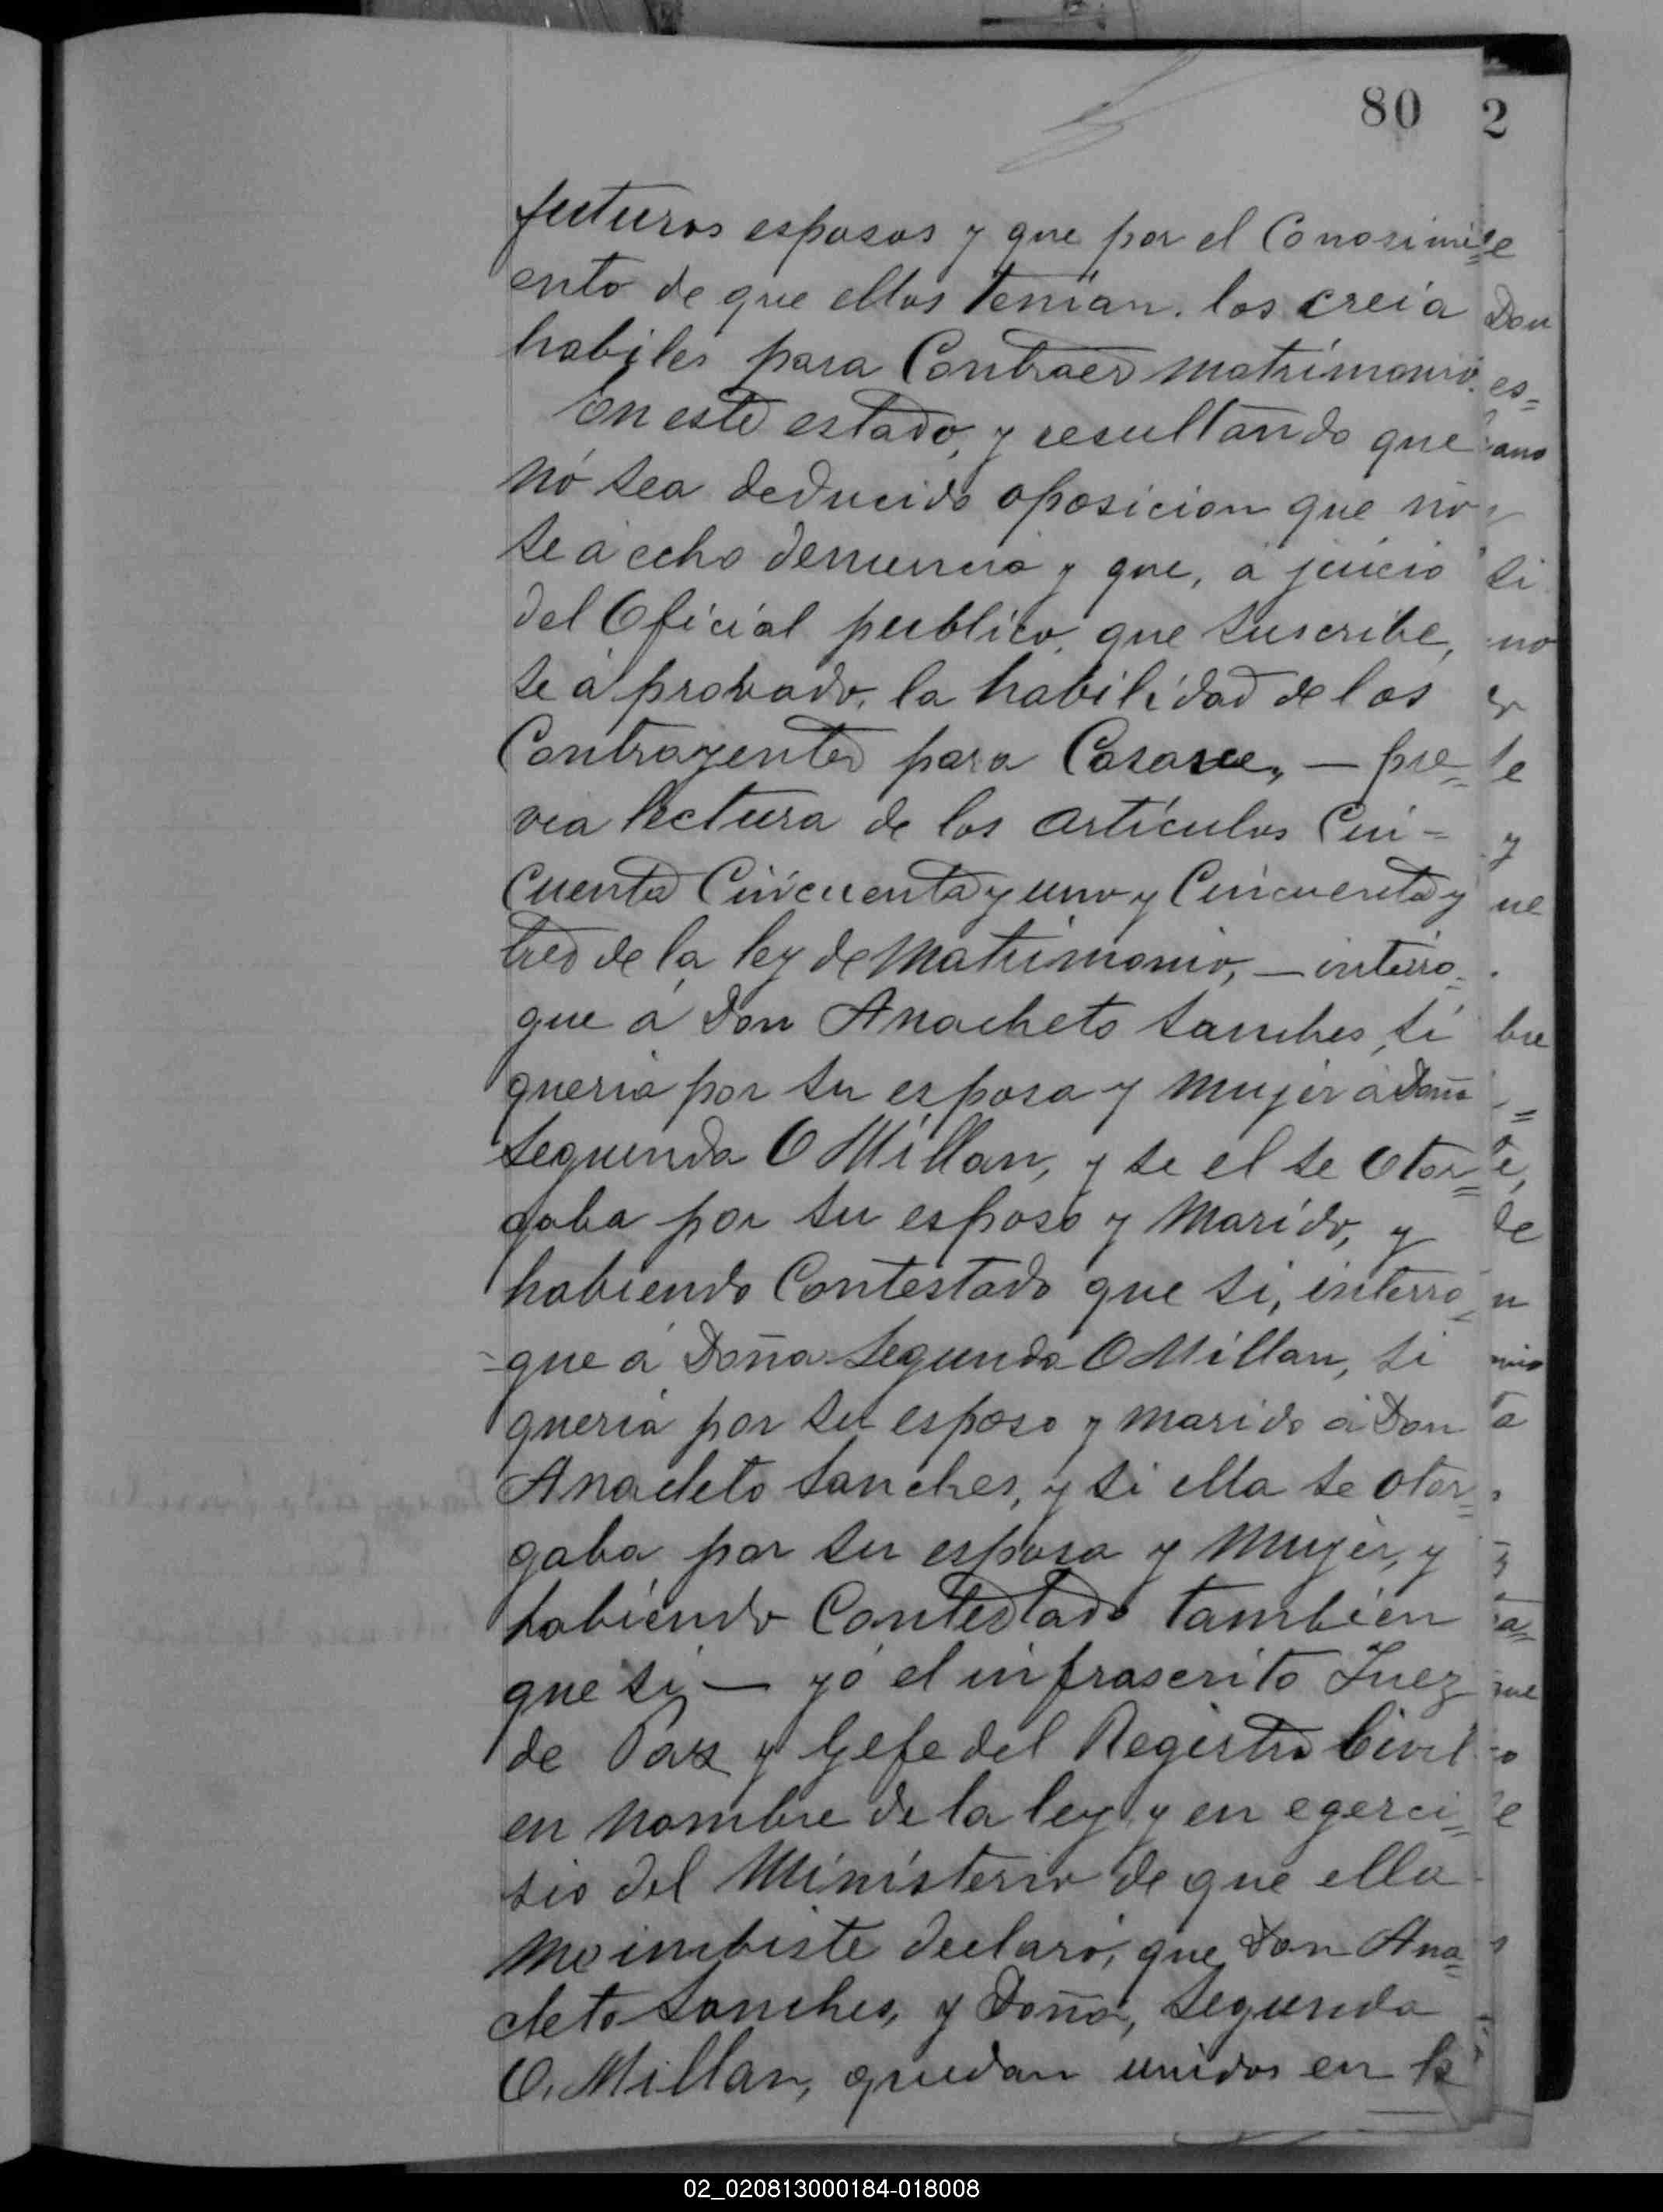 80 2
futuros esposos y que por el Conosimi=
ento de que ellos tenian. los creia
habiles para Contraer matrimonio.
En este estado, y resultando que
nó sea deducido oposicion que nó
se á echo denuncia y que, á juicio
del Oficial publico, que suscribe,
se á probado, la habilidad de los
Contrayentes para Casarce, — pre=
via lectura de los articulos Cin-
cuenta Cincuenta y uno y Cincuenta y
tres de la ley de Matrimonio, — interro=
que á Don Anacheto Sanches, si
queria por su esposa y mujer á Doña
Segunda O Millan, y se el se Otor=
gaba por su esposo y marido, y
habiendo Contestado que si, interro=
que á Doña Segunda O Millan, si
queria por su esposo y marido á Don
Anacleto Sanches, y si ella se otor=
gaba por su esposa y Mujer, y
habiendo Contestado tambien
que si — yó el infrascrito Juez
de Paz y Gefe del Registro Civil
en nombre de la ley y en egerci=
sio del Ministerio de que ella
me imbiste declaro, que Don Ana=
cleto Sanches, y Doña, Segunda
O. Millan, quedan unidos en la
Don
es=
ano
si
no
se
y
ue
bre
de
02_020813000184-018008